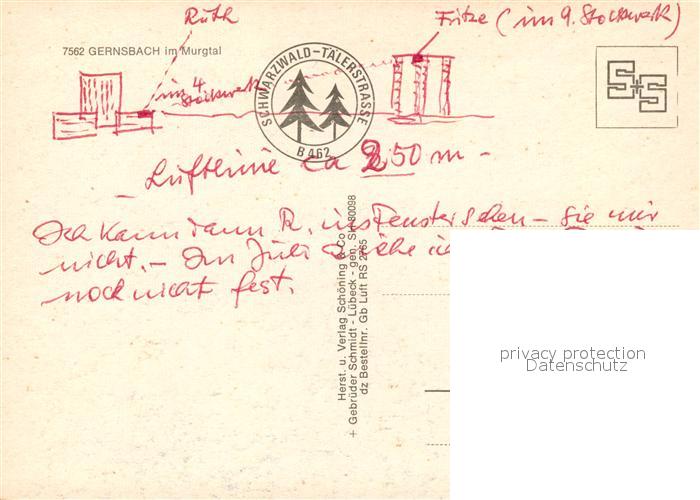 Ruth
Fritze (im 9. Stockwerk)
7562 GERNSBACH im Murgtal
im 4.
Stockwerk
SCHWARZWALD-TÄLERSTRASSE
B 462
S+S
Luftlinie ca 250 m -
Ich kann dann R. ins Fenster sehen - Sie mir
nicht. - Im Juli
noch nicht fest.
Herst. u. Verlag Schöning & Co
+ Gebrüder Schmidt - Lübeck - gen. SH 80098
dz Bestellnr. Gb Luft RS 2765
privacy protection
Datenschutz